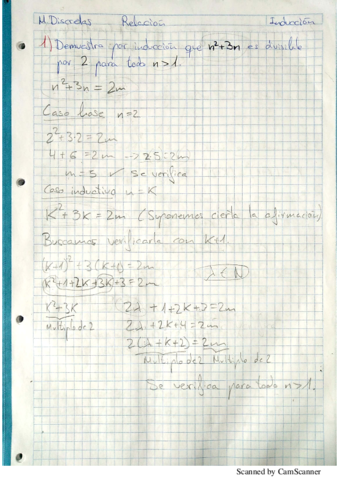 M. Discretas Relación Inducción
1) Demuestra por inducción que n²+3n es divisible
por 2 para todo n>1.
n²+3n = 2m
Caso base n=2
2²+3·2=2m
4+6=2m --> 2·5=2m
m=5 ✓ Se verifica
Caso inductivo n=K
K²+3K=2m (Suponemos cierta la afirmación)
Buscamos verificarla con K+1.
(K+1)²+3(K+1)=2m
λ∈ℕ
K²+1+2K+3K+3=2m
K²+3K 2λ+1+2K+3=2m
Múltiplo de 2 2λ+2K+4=2m
2(λ+K+2)=2m
Múltiplo de 2 Múltiplo de 2
Se verifica para todo n>1.
Scanned by CamScanner